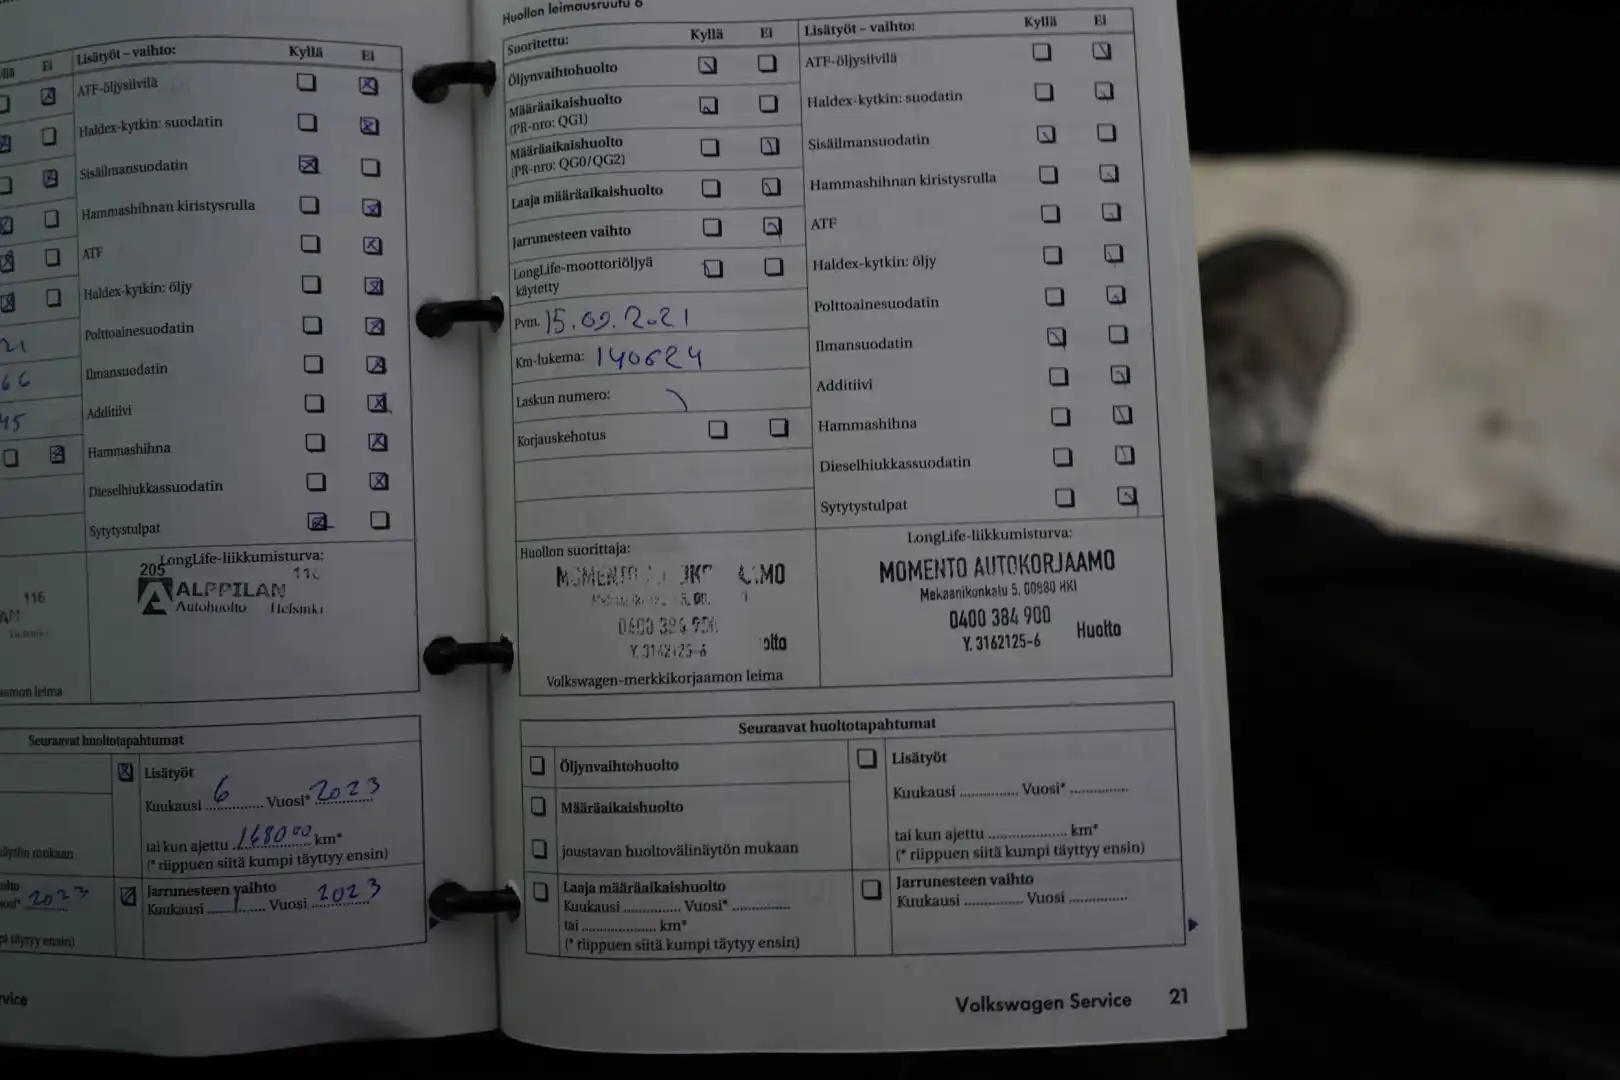 Ei
Lisätyöt – vaihto:
Kyllä
Ei
ATF-öljysiivilä
Haldex-kytkin: suodatin
Sisäilmansuodatin
Hammashihnan kiristysrulla
ATF
Haldex-kytkin: öljy
Polttoainesuodatin
Ilmansuodatin
Additiivi
Hammashihna
Dieselhiukkassuodatin
Sytytystulpat
21
66
45
LongLife-liikkumisturva:
205
116
ALPPILAN
Autohuolto Helsinki
116
Seuraavat huoltotapahtumat
Lisätyöt
Kuukausi 6 Vuosi* 2023
tai kun ajettu 168000 km*
(* riippuen siitä kumpi täyttyy ensin)
Jarrunesteen vaihto
Kuukausi Vuosi 2023
2023
Huollon leimausruutu 6
Suoritettu:
Kyllä
Ei
Öljynvaihtohuolto
Määräaikaishuolto
(PR-nro: QG1)
Määräaikaishuolto
(PR-nro: QG0/QG2)
Laaja määräaikaishuolto
Jarrunesteen vaihto
LongLife-moottoriöljyä
käytetty
Pvm. 15.09.2021
Km-lukema: 140624
Laskun numero:
Korjauskehotus
Lisätyöt – vaihto:
Kyllä
Ei
ATF-öljysiivilä
Haldex-kytkin: suodatin
Sisäilmansuodatin
Hammashihnan kiristysrulla
ATF
Haldex-kytkin: öljy
Polttoainesuodatin
Ilmansuodatin
Additiivi
Hammashihna
Dieselhiukkassuodatin
Sytytystulpat
Huollon suorittaja:
MOMENTO
Y. 3162125-6
Volkswagen-merkkikorjaamon leima
LongLife-liikkumisturva:
MOMENTO AUTOKORJAAMO
Mekaanikonkatu 5, 00880 HKI
0400 384 900
Y. 3162125-6 Huolto
Seuraavat huoltotapahtumat
Öljynvaihtohuolto
Määräaikaishuolto
joustavan huoltovälinäytön mukaan
Laaja määräaikaishuolto
Kuukausi ............... Vuosi* ...............
tai .................... km*
(* riippuen siitä kumpi täytyy ensin)
Lisätyöt
Kuukausi ............... Vuosi* ...............
tai kun ajettu .................... km*
(* riippuen siitä kumpi täyttyy ensin)
Jarrunesteen vaihto
Kuukausi ............... Vuosi ...............
Volkswagen Service 21